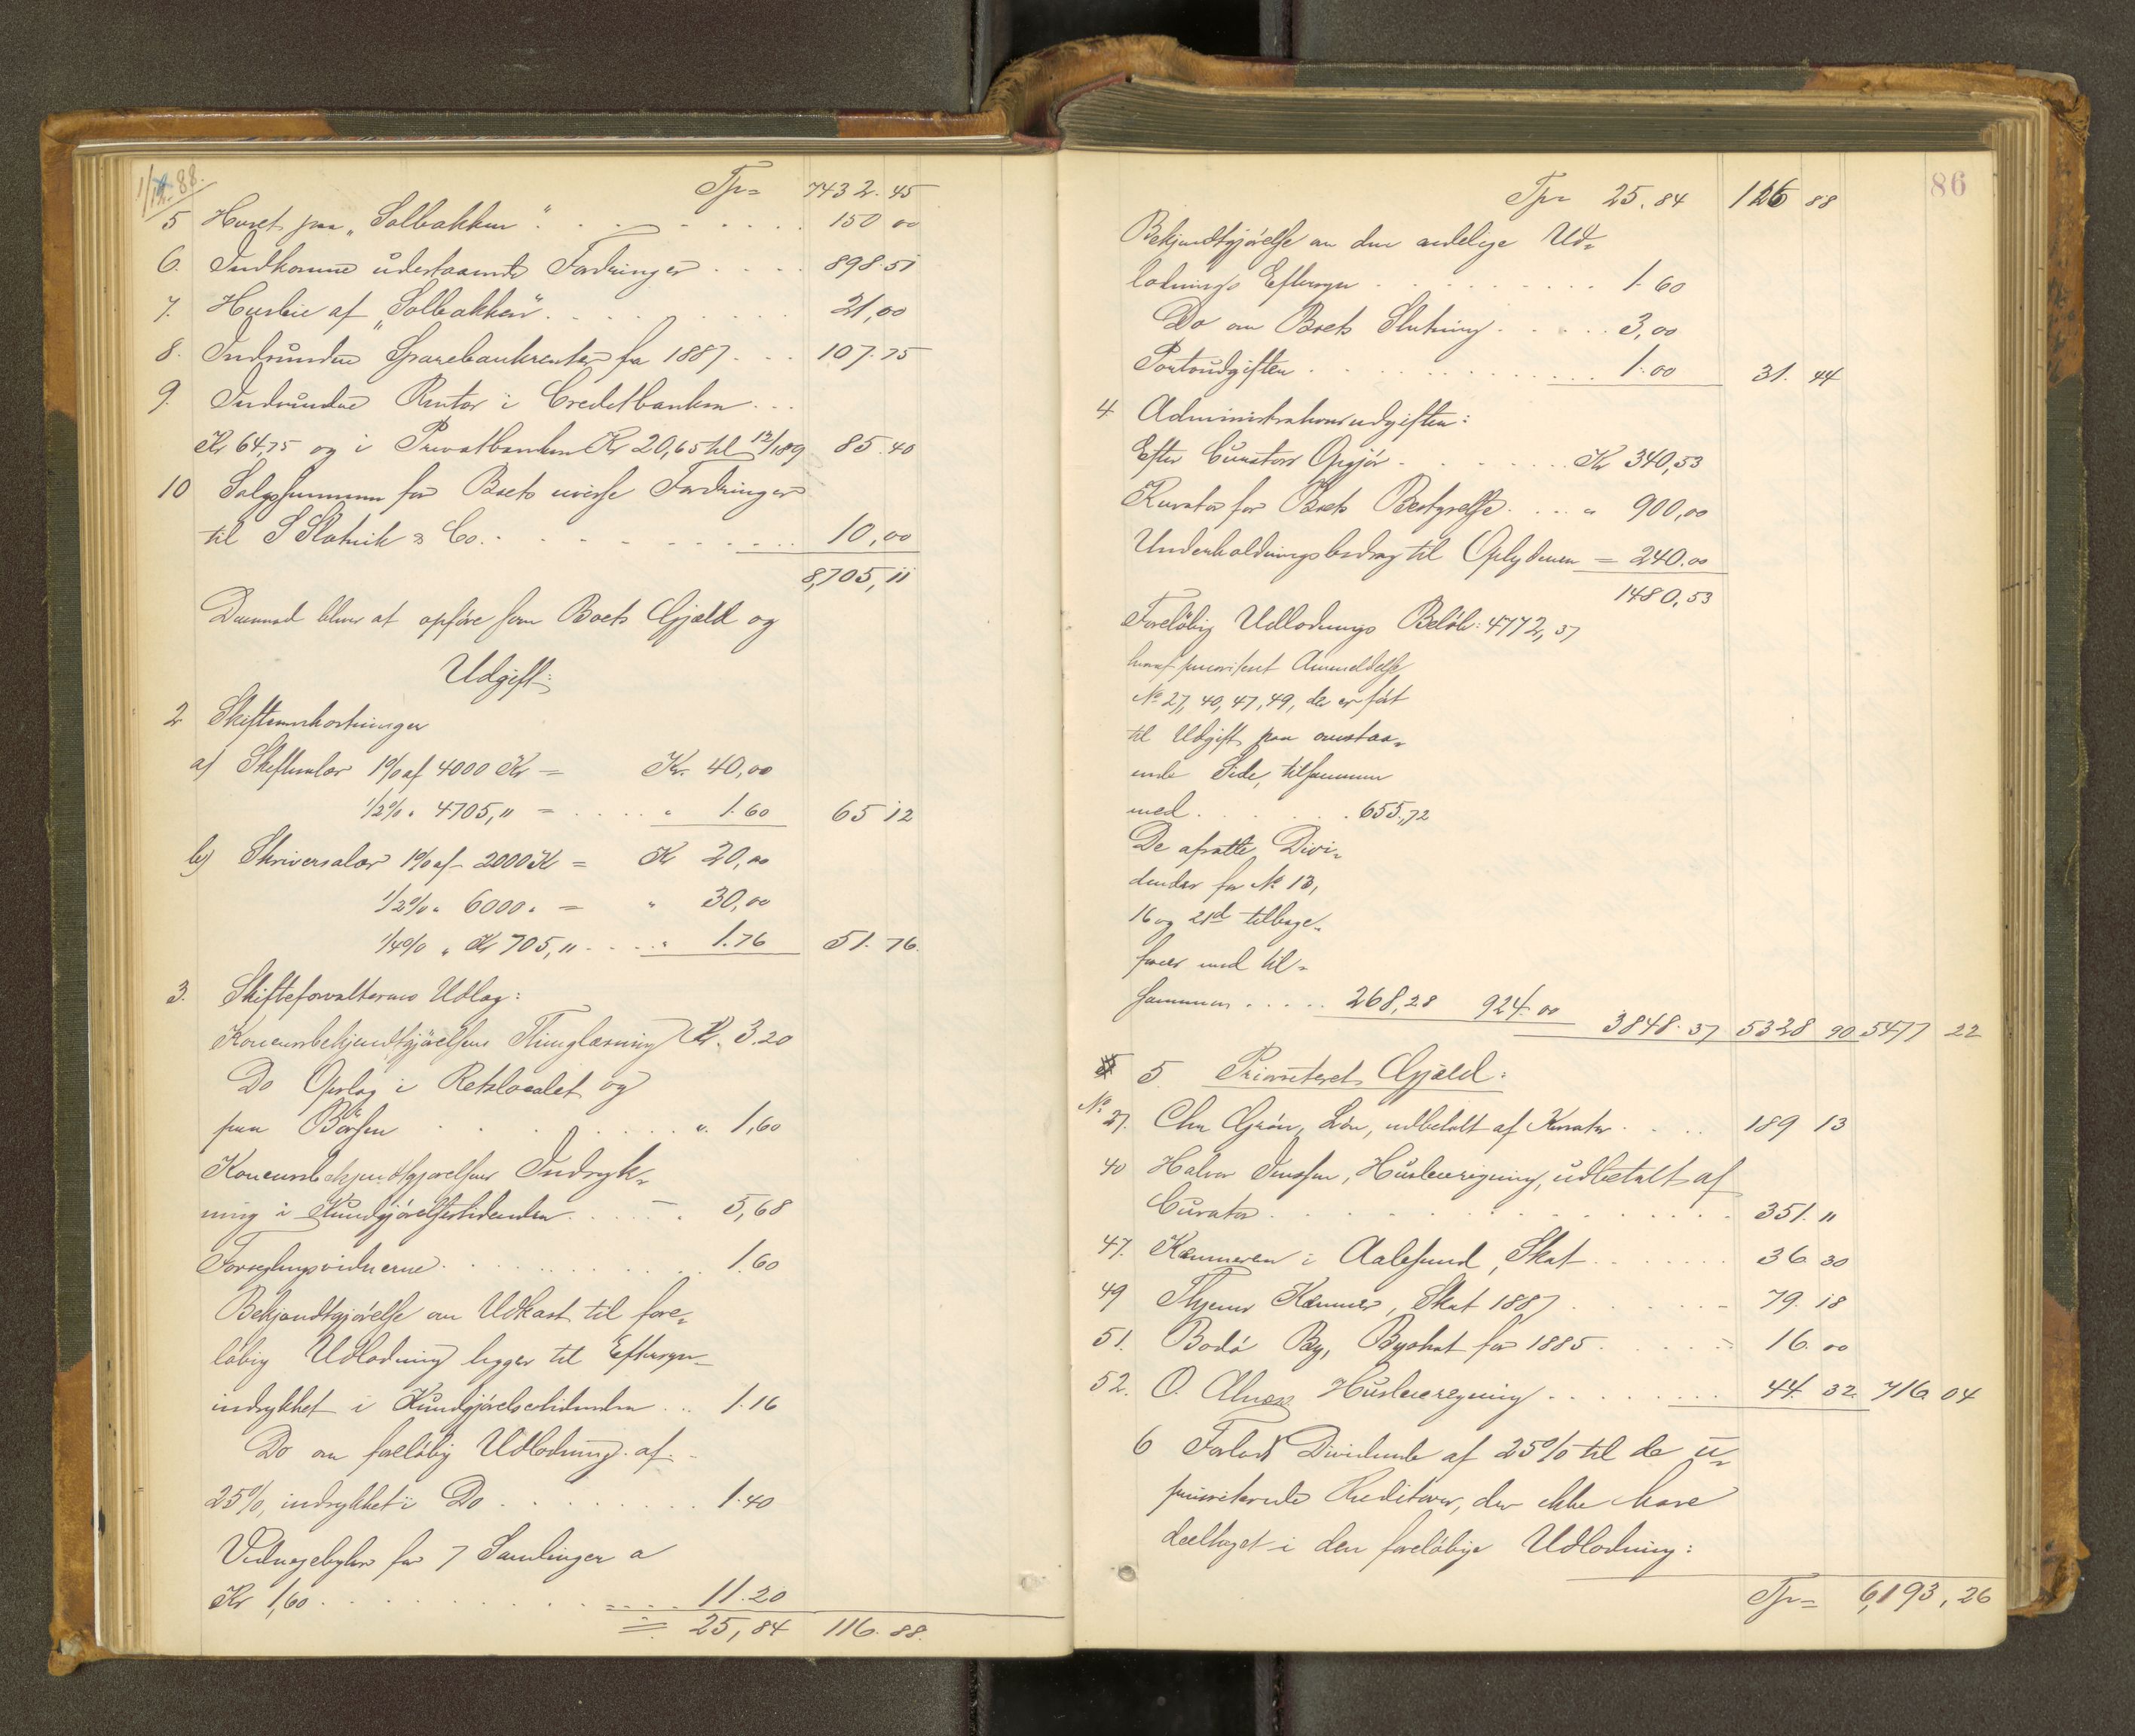 1/12.88.
Tpr= 7432.45
5 Huset paa "Solbakken" . . . . . . 150 00
6. Indkomne udestaaende Fordringer . . . . 898.51
7. Husleie af "Solbakken" . . . . . . 21,00
8. Indvundne Sparebankrenter for 1887 . . . 107.75
9. Indvundne Renter i Creditbanken . . .
Kr 64,75 og i Privatbanken Kr 20,65 til 12/1 89 85.40
10 Salgssummen for Boets uvisse Fordringer
til S Slotnik & Co. . . . . . . . . 10,00
8,705,11
Derimod bliver at opføre som Boets Gjæld og
Udgift:
2 Skifteomkostninger
a) Skiftesalær 1% af 4000 Kr = Kr. 40,00
1/2% " 4705,11 = . . . . " 1.60 65 12
b) Skriversalær 1% af 2000 Kr = Kr 20,00
1/2% " 6000 " = " 30,00
1/4% " Kr 705,11 . . . . " 1.76 51.76.
3. Skifteforvalterens Udlæg:
Konkursbekjendtgjørelsens Thinglæsning Kr. 3.20
Do Opslag i Retslocalet og
paa Børsen . . . . . . . . " 1,60
Konkursbekjendtgjørelsens Indryk-
ning i Kundgjørelsestidenden . . . . . 5,68
Forseglingsvidnerne . . . . . . . . . 1.60
Bekjendtgjørelse om Udkast til fore-
løbig Udlodning ligger til Eftersyn
indrykket i Kundgjørelsestidenden . . 1.16
Do om foreløbig Udlodning af
25%, indrykket i Do . . . . . . . . 1.40
Vidnegebyhr for 7 Samlinger a
Kr 1,60 . . . . . . . . . . . . 11.20
= 25,84 116.88.
86
Tpr 25.84 116 88
Bekjendtgjørelse om den endelige Ud-
lodnings Eftersyn . . . . . . . . . 1.60
Do om Boets Slutning . . . . . 3,00
Portoudgifter . . . . . . . . . . . 1.00 31.44
4. Administrationsudgifter:
Efter Curators Opgjør . . . . . . Kr 340,53
Kurator for Boets Bestyrelse . . . " 900,00
Underholdningsbidrag til Oplyderen = 240.00
1480,53
Foreløbig Udlodnings Beløb: 4772,37
hvoraf prioriteret Anmeldelse
No 27, 40, 47, 49, der er ført
til Udgift paa omstaa-
ende Side, tilsammen
med . . . . . . 655,72
De afsatte Divi-
dender for No 13,
16 og 21d tilbage-
føres med til-
sammen . . . . . 268,28 924.00
3848.37 5328 90 5477 22
5. Prioriteret Gjæld:
No 27. Chr Grøn, Løn, udbetalt af Kurator . . . . 189 13
40 Halvor Jenssen, Husleieregning, udbetalt af
Curator . . . . . . . . . . . . . . 351.11
47. Kæmneren i Aalesund, Skat . . . . . . . 36 30
49 Thjems Kæmner, Skat 1887 . . . . . . . 79.18
51. Bodø By, Byskat for 1885 . . . . . . 16.00
52. O. Alnæs Husleieregning . . . . . . . . 44.32 716 04
6 Forlods Dividende af 25% til de u-
prioriterede Kreditorer, der ikke have
deeltaget i den foreløbige Udlodning:
Tpr= 6,193,26